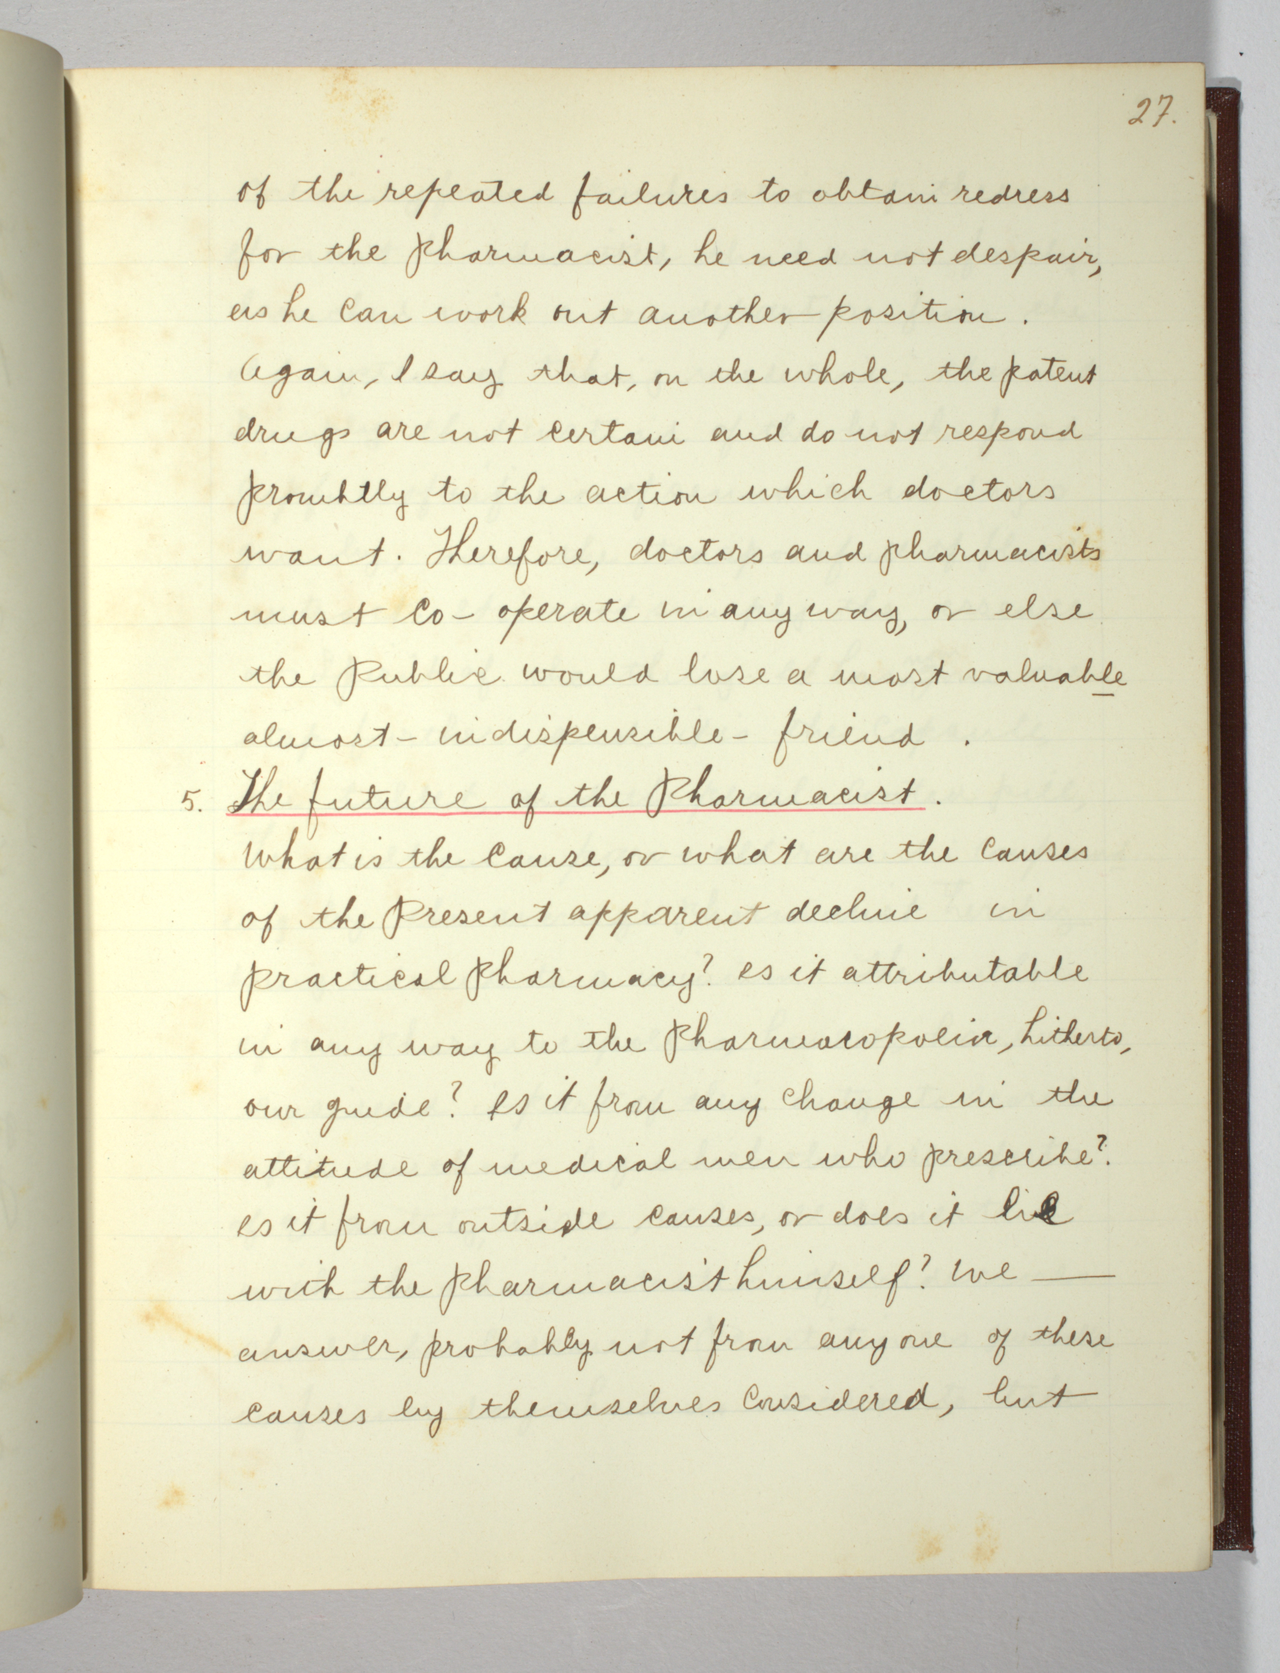 27.
of the repeated failures to obtain redress
for the pharmacist, he need not despair,
as he can work out another position.
Again, I say that, on the whole, the patent
drugs are not certain and do not respond
promptly to the action which doctors
want. Therefore, doctors and pharmacists
must co-operate in any way, or else
the public would lose a most valuable
almost-indispensible-friend.
5. The future of the Pharmacist.
What is the cause, or what are the causes
of the present apparent decline in
practical pharmacy? Is it attributable
in any way to the Pharmacopoeia, hitherto,
our guide? Is it from any change in the
attitude of medical men who prescribe?
Is it from outside causes, or does it lie
with the pharmacist himself? We —
answer, probably not from any one of these
causes by themselves considered, but